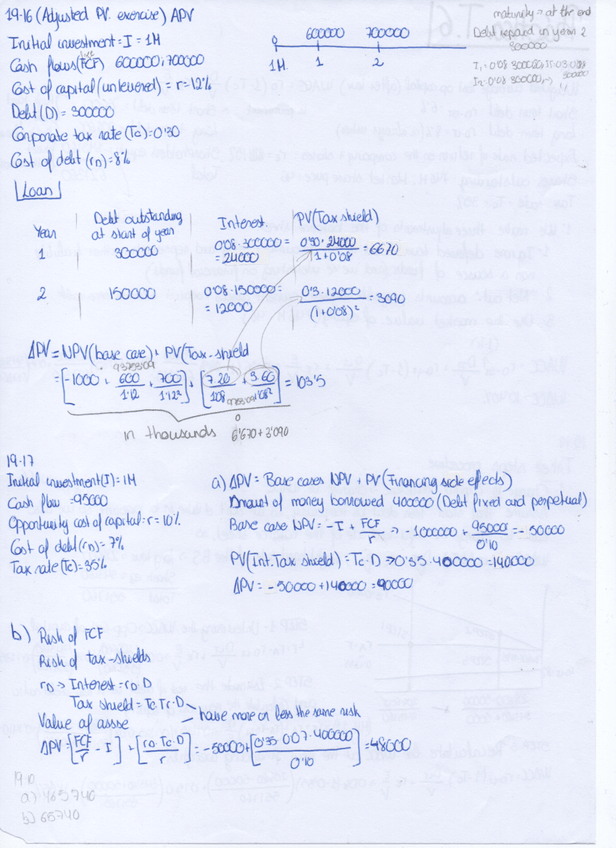 19-16 (Adjusted PV exercise) APV
Initial investment = I = 1M
Cash flows (FCF) 600000, 700000
Cost of capital (unlevered) = r = 12%
Debt (D) = 300000
Corporate tax rate (Tc) = 0'30
Cost of debt (rD) = 8%
600000 700000
0
1M 1 2
maturity = at the end
Debt repaid in year 2
300000
Loan
Year
Debt outstanding at start of year
Interest
PV (Tax shield)
1 300000 0'08·300000 = 24000 0'30·24000 / 1+0'08 = 6670
2 150000 0'08·150000 = 12000 0'3·12000 / (1+0'08)² = 3090
APV = NPV (base case) + PV (Tax-shield
= [-1000 + 600/1'12 + 700/1'12²] + [7.20/1'08 + 3.60/1'08²] = 103'5
in thousands 6'670+3'090
19-17
Initial investment (I) = 1M
Cash flow = 95000
Opportunity cost of capital = r = 10%
Cost of debt (rD) = 7%
Tax rate (Tc) = 35%
a) APV = Base cases NPV + PV (Financing side effects)
Amount of money borrowed 400000 (Debt fixed and perpetual)
Base case NPV = -I + FCF/r => -1000000 + 95000/0'10 = -50000
PV (Int. Tax shield) = Tc·D => 0'35·400000 = 140000
APV = -50000 + 140000 = 90000
b) Risk of FCF
Risk of Tax-shields
rD => Interest = rD·D
Tax shield = Tc·rD·D
have more or less the same risk
APV = [FCF/r - I] + [rD·Tc·D/r] = -50000 + [0'35·0'07·400000/0'10] = 48000
a) 465740
b) 65740